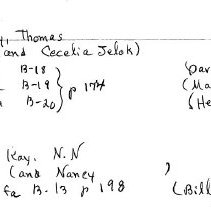 y, Thomas
and Cecelia Jelok)
B-18
B-19 } p 174 (Ma
B-20 (He
Kay. N.N
(and Nancy )
fa B-13 p 198 (Bill